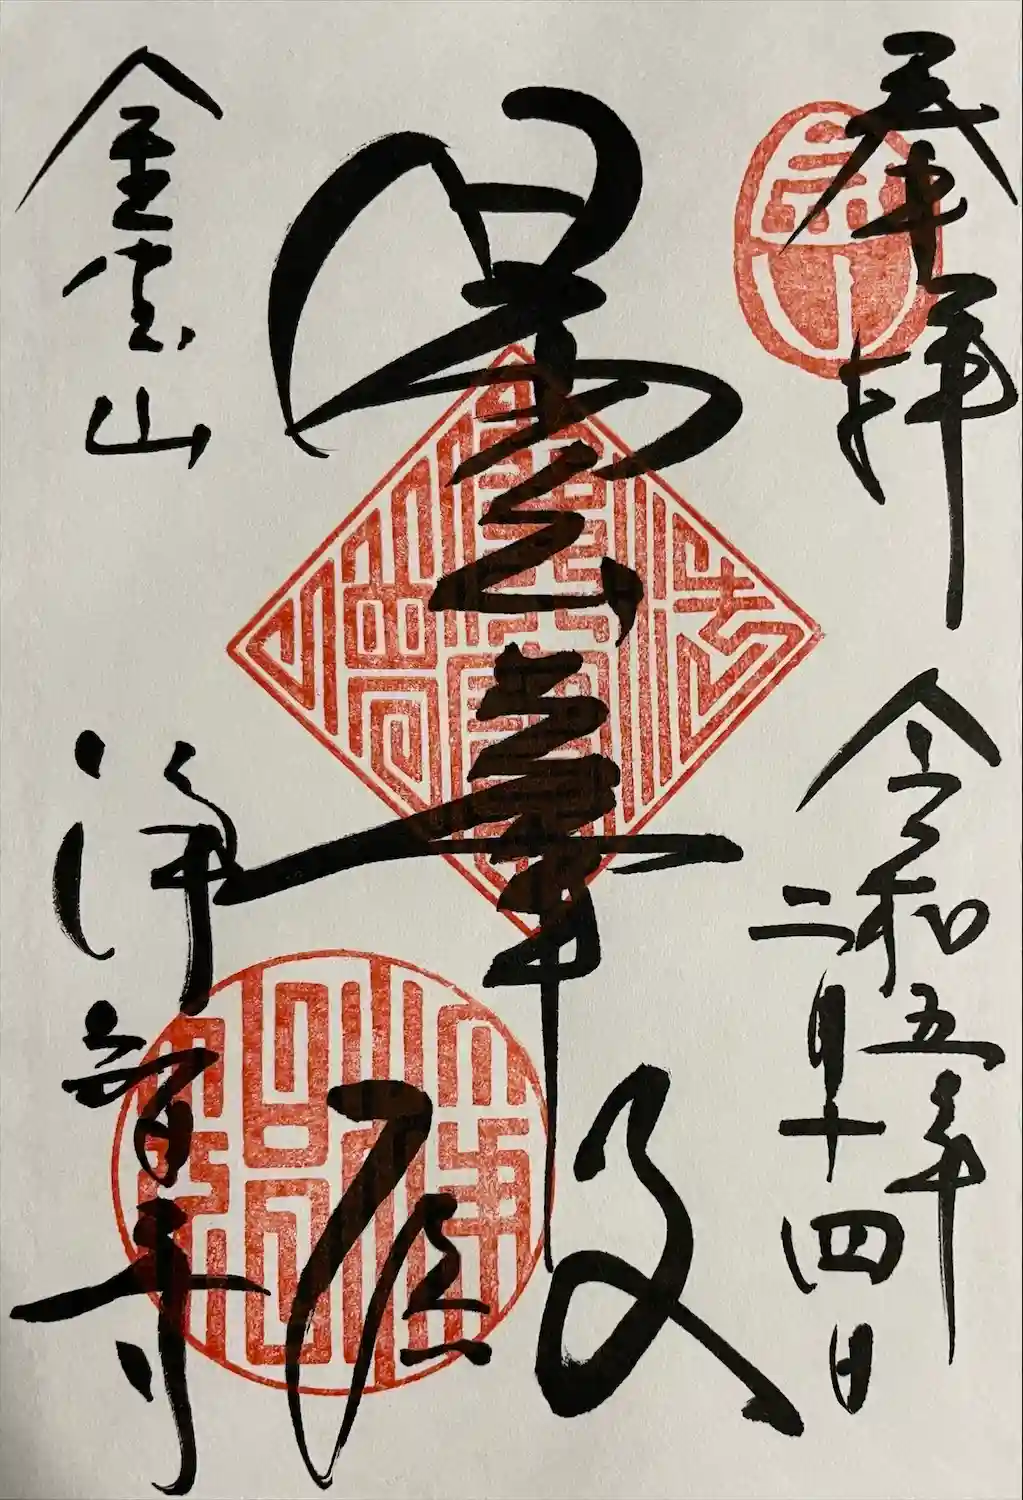 奉拝
令和五年
二月十四日
曇華殿
金宝山
浄智寺